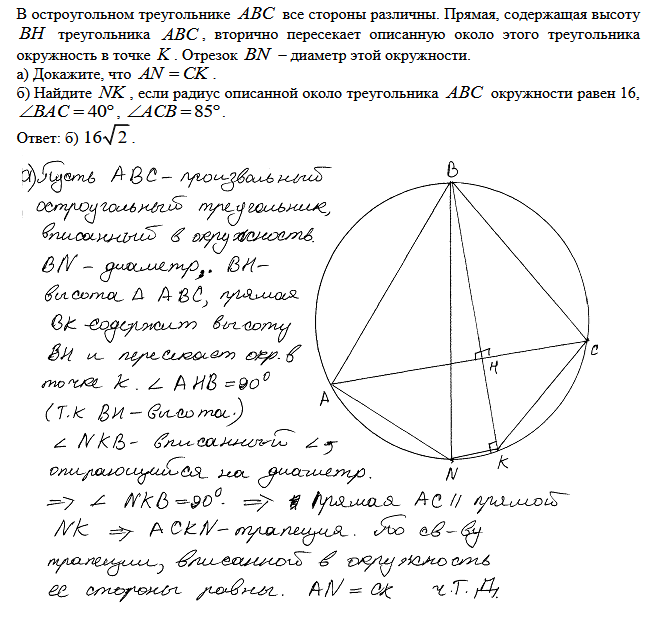 В остроугольном треугольнике ABC все стороны различны. Прямая, содержащая высоту
BH треугольника ABC, вторично пересекает описанную около этого треугольника
окружность в точке K. Отрезок BN – диаметр этой окружности.
а) Докажите, что AN = CK.
б) Найдите NK, если радиус описанной около треугольника ABC окружности равен 16,
∠BAC = 40°, ∠ACB = 85°.
Ответ: б) 16√2.
а) Пусть ABC – произвольный
остроугольный треугольник,
вписанный в окружность.
BN – диаметр, BH –
высота Δ ABC, прямая
BK содержит высоту
BH и пересекает окр. в
точке K. ∠ AHB = 90°
(т.к BH – высота.)
∠ NKB – вписанный ∠,
опирающийся на диаметр.
=> ∠ NKB = 90°. => прямая AC || прямой
NK => ACKN – трапеция. По св-ву
трапеции, вписанной в окружность
ее стороны равны. AN = CK ч.т.д.
B
C
H
A
N
K